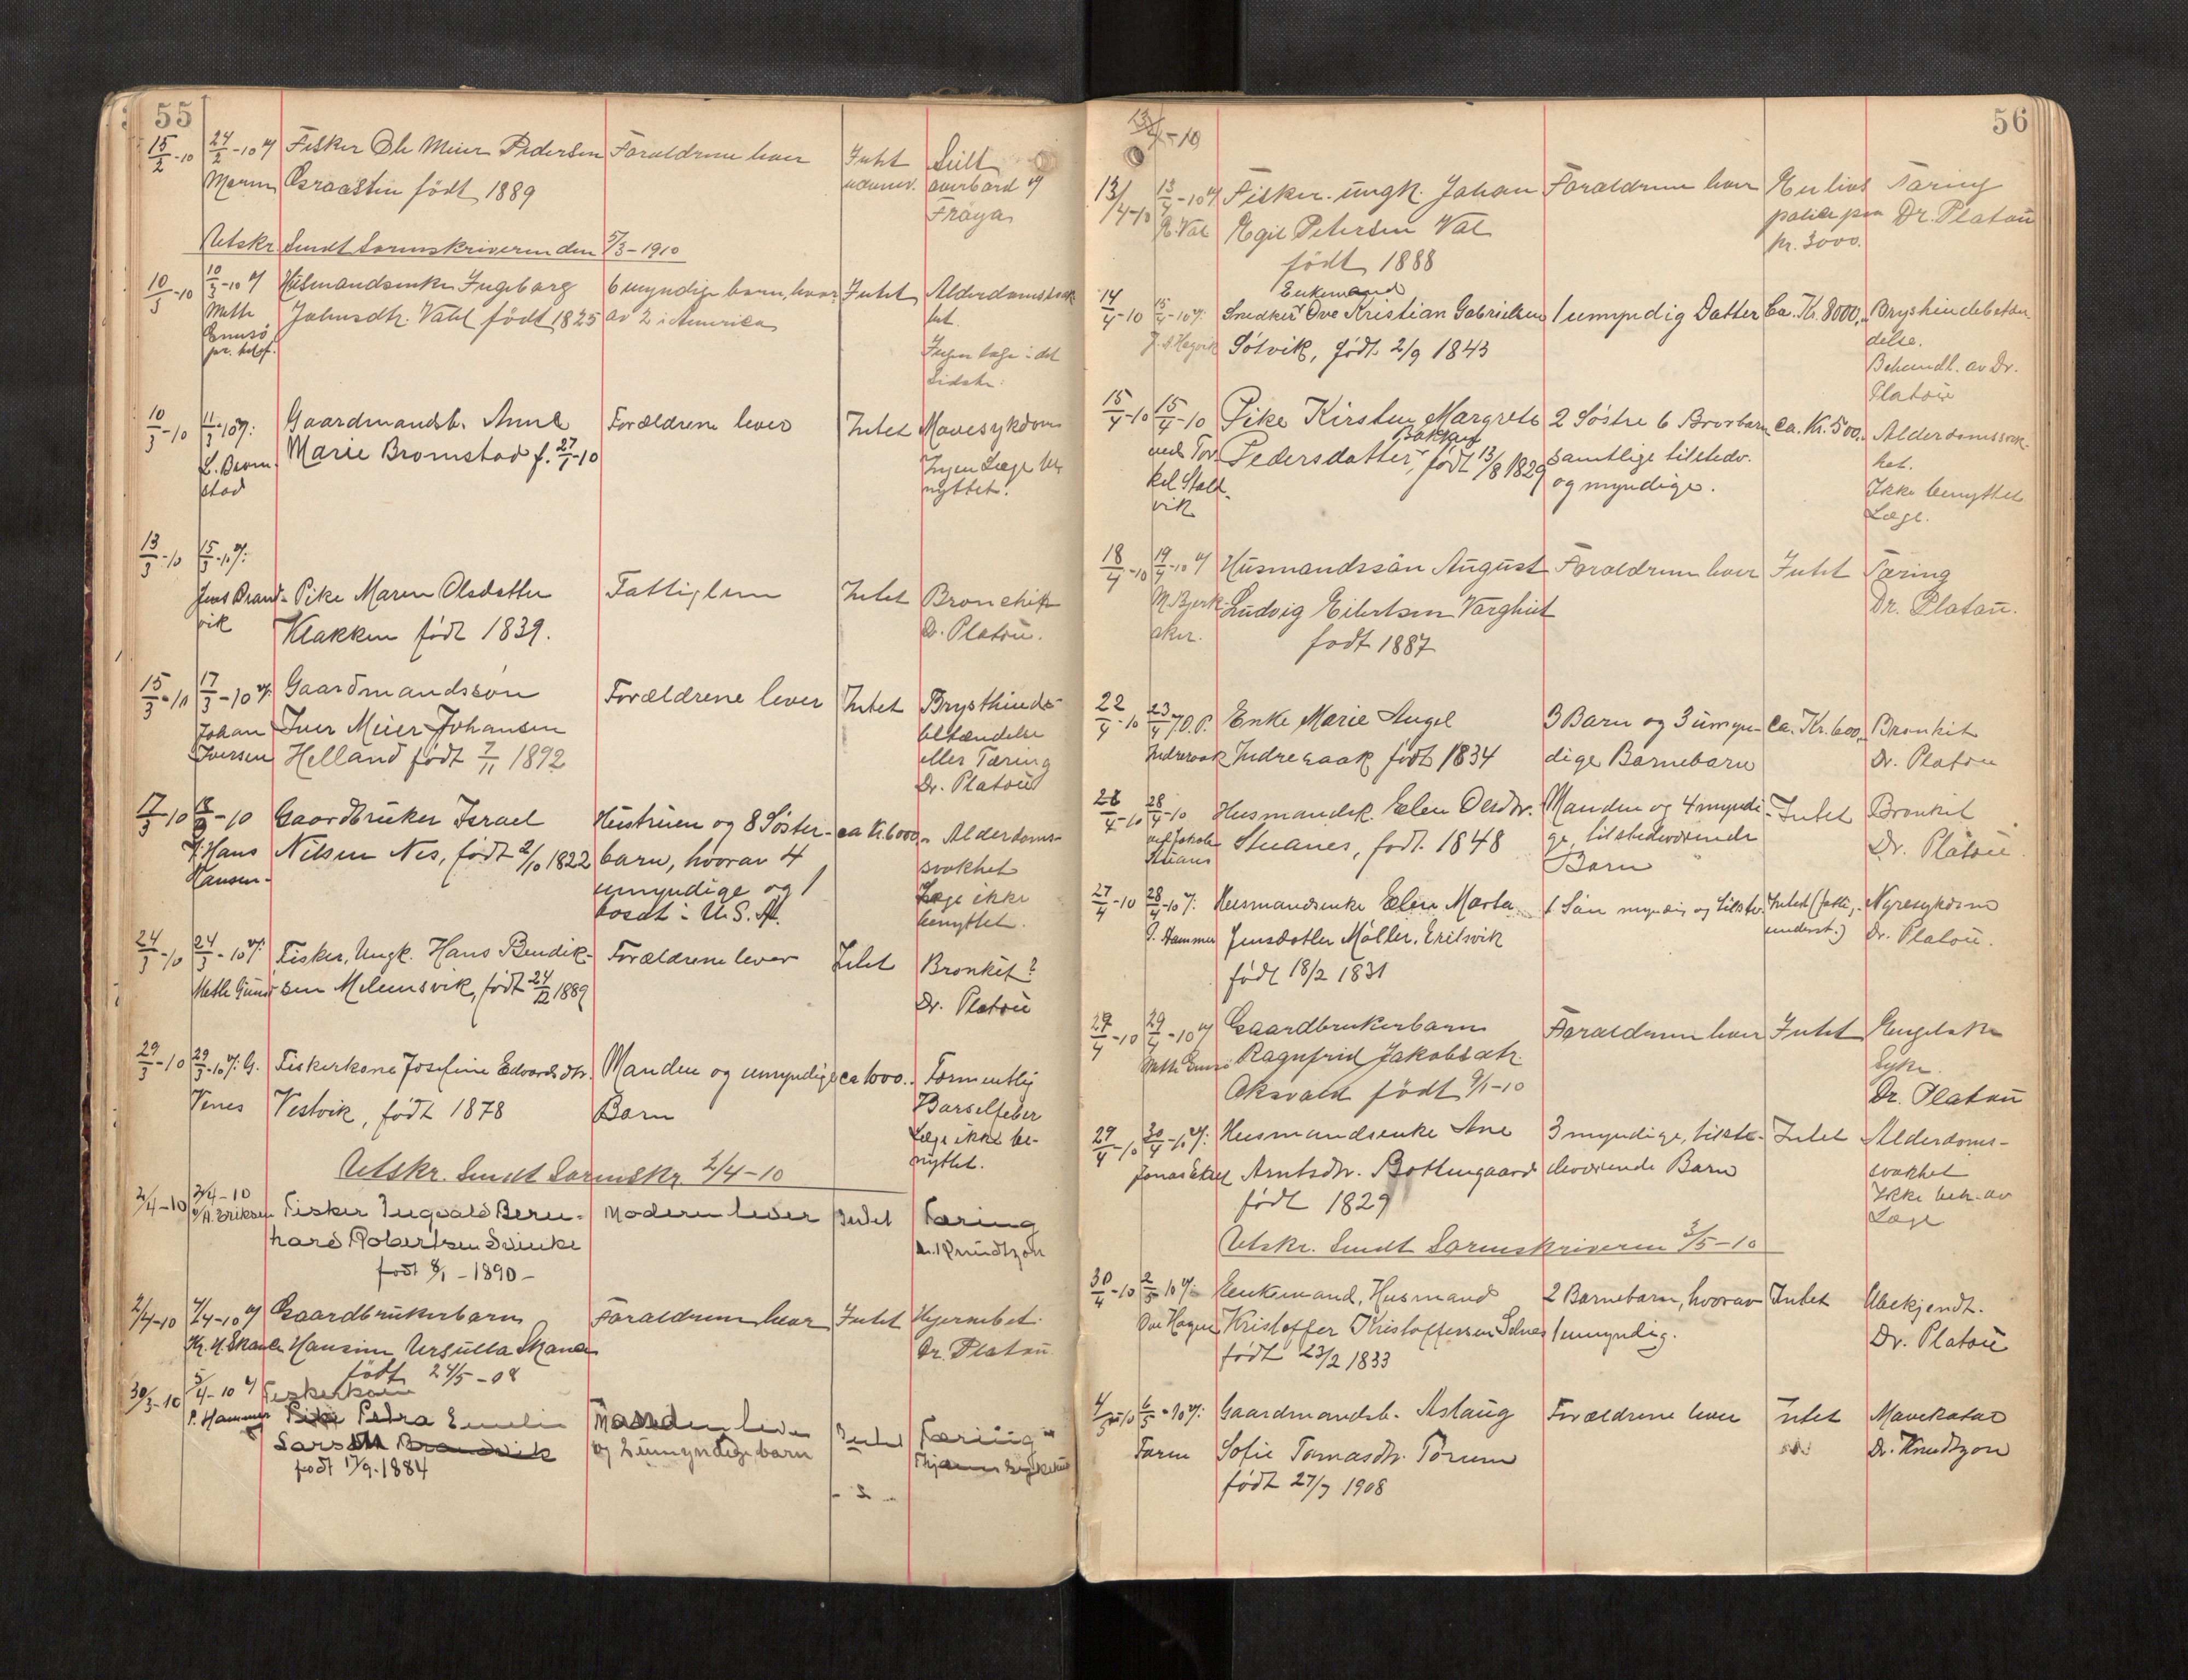 55
15/2-10 24/2-10 v/ Fisker Ole Meier Pedersen Forældrene lever Intet Siilt
Maren født 1889 overbord v/
Fröya
Utskr. Sendt Sorenskriveren den 5/3-1910
10/3-10 10/3-10 v/ Ingeborg 6 myndige barn, hvor Intet Alderdomssvak
Meth Johnsdtr. Vatil født 1825 av 2 i America het.
Ingen læge i det
sidste.
10/3-10 11/3-10 v/: Gaardmandsb. Anne Forældrene lever Intet Mavesykdom
L. Brom- Marie Bromstad f. 27/1-10 Ingen Læge be-
stad nyttet.
13/3-10 15/3-10 v/:
Jens Brand- Pike Maren Olsdatter Fattiglem Intet Bronchit
vik Klakken født 1839. Dr. Platou.
15/3-10 17/3-10 v/: Gaardmandssön Forældrene lever Intet Brysthinde-
Johan Iver Meier Johansen betændelse
Iversen Helland født 7/11 1892 eller Tæring
Dr. Platou
17/3-10 18/3-10 Gaardbruker Israel Hustruen og 8 Söster- ca Kr 6000,- Alderdoms-
v/ Hans Nilsen Nes, født 2/10 1822 barn, hvorav 4 svakhet
Hansen- umyndige og 1 Læge ikke
bosat i U.S.A. benyttet.
24/3-10 24/3-10 v/: Fisker, Ungk. Hans Bendik- Forældrene lever Intet Bronkit?
Meth sen Melumsvik, født 24/12 1889 Dr. Platou
29/3-10 29/3-10 v/: G. Fiskerkone Josefine Edvardsdtr. Manden og umyndige ca 1000.- Formentlig
Venes Vestvik, født 1878 Barn Barselfeber
Læge ikke be-
nyttet.
Utskr. Sendt Sorenskr 2/4-10
2/4-10 2/4-10
v/A. Eriksen Fisker Ingvald Bern- Moderen lever Intet Tæring
hard Robertsen Svinke Dr. Knudtzon
født 8/1-1890-
2/4-10 4/4-10 v/ Gaardbrukerbarn Forældrene lever Intet
Kr. M. Skaner Hansine Ursulla Skaner Dr. Platou
født 24/5-08
30/3-10 5/4-10 v/ Fiskerkone
P. Hammer Petra Emelie Manden lever Intet Tæring
Larsdtr og 2 umyndige barn
født 17/9-1884
56
13/4-10
13/4-10 13/4-10 v/ Fisker. ungk. Johan Forældrene lever En livs Tæring
E. Val Egil Petersen Val police paa Dr. Platou
født 1888 kr. 3000.
Enkemand
14/4-10 15/4-10 v/: Snedker Ove Kristian Gabrielsen 1 umyndig Datter Ca. Kr. 8000,- Brysthindebetæn-
Sötvik, født 2/9 1843 delse.
Behandl. av Dr.
Platou
15/4-10 15/4-10 Pike Kirsten Margrete 2 Söstre 6 Brorbarn Ca. Kr. 500,- Alderdomssvak-
ved Tor- Pedersdatter, født 13/8 1829 samtlige tilstedv. het.
kel og myndige. Ikke benyttet
vik Læge.
18/4-10 19/4-10 v/ Husmandssön August Forældrene lever Intet Tæring
M. Bjerk- Ludvig Eilertsen Varghiet Dr. Platou.
aker. født 1887
22/4-10 23/4 v/ O.P. Enke Marie Angel 3 Barn og 3 umyn- Ca. Kr. 600,- Bronkit
Indreraak Indreraak født 1834 dige Barnebarn Dr. Platou
28/4-10 28/4-10 Husmandsk. Elen Olsdtr. Manden og 4 myndi- Intet Bronkit
ved Jakob Stuanes, født 1848 ge, tilstedeværende Dr. Platou
Barn
27/4-10 28/4-10 v/: Husmandsenke Elen Marta 1 Sön myndig og tilste. Intet (fatti.- Nyresykdom
P. Hammer Jensdatter Möller, Eritsvik underst.) Dr. Platou.
født 18/2 1831
27/4-10 29/4-10 v/ Gaardbrukerbarn Forældrene lever Intet Engelske
Meth Ragnfrid Jakobsdtr. Syke.
Oksvald født 9/1-10 Dr. Platou
29/4-10 30/4-10 v/: Husmandsenke Ane 3 myndige, tilste- Intet Alderdoms-
Arntsdtr. Bottengaard deværende Barn svakhet
født 1829 Ikke beh. av
Læge
Utskr. Sendt Sorenskriveren 3/5-10
30/4-10 2/5-10 v/: Enkemand, Husmand 2 Barnebarn, hvorav Intet Ubekjendt.
Ove Hagen Kristoffer Kristoffersen Selnes 1 umyndig. Dr. Platou
født 23/2 1833
4/5-10 6/5-10 v/: Gaardmandsb. Aslaug Forældrene lever Intet Mavekatar
Sofie Tomasdtr. Törum Dr. Knudtzon
født 27/7 1908